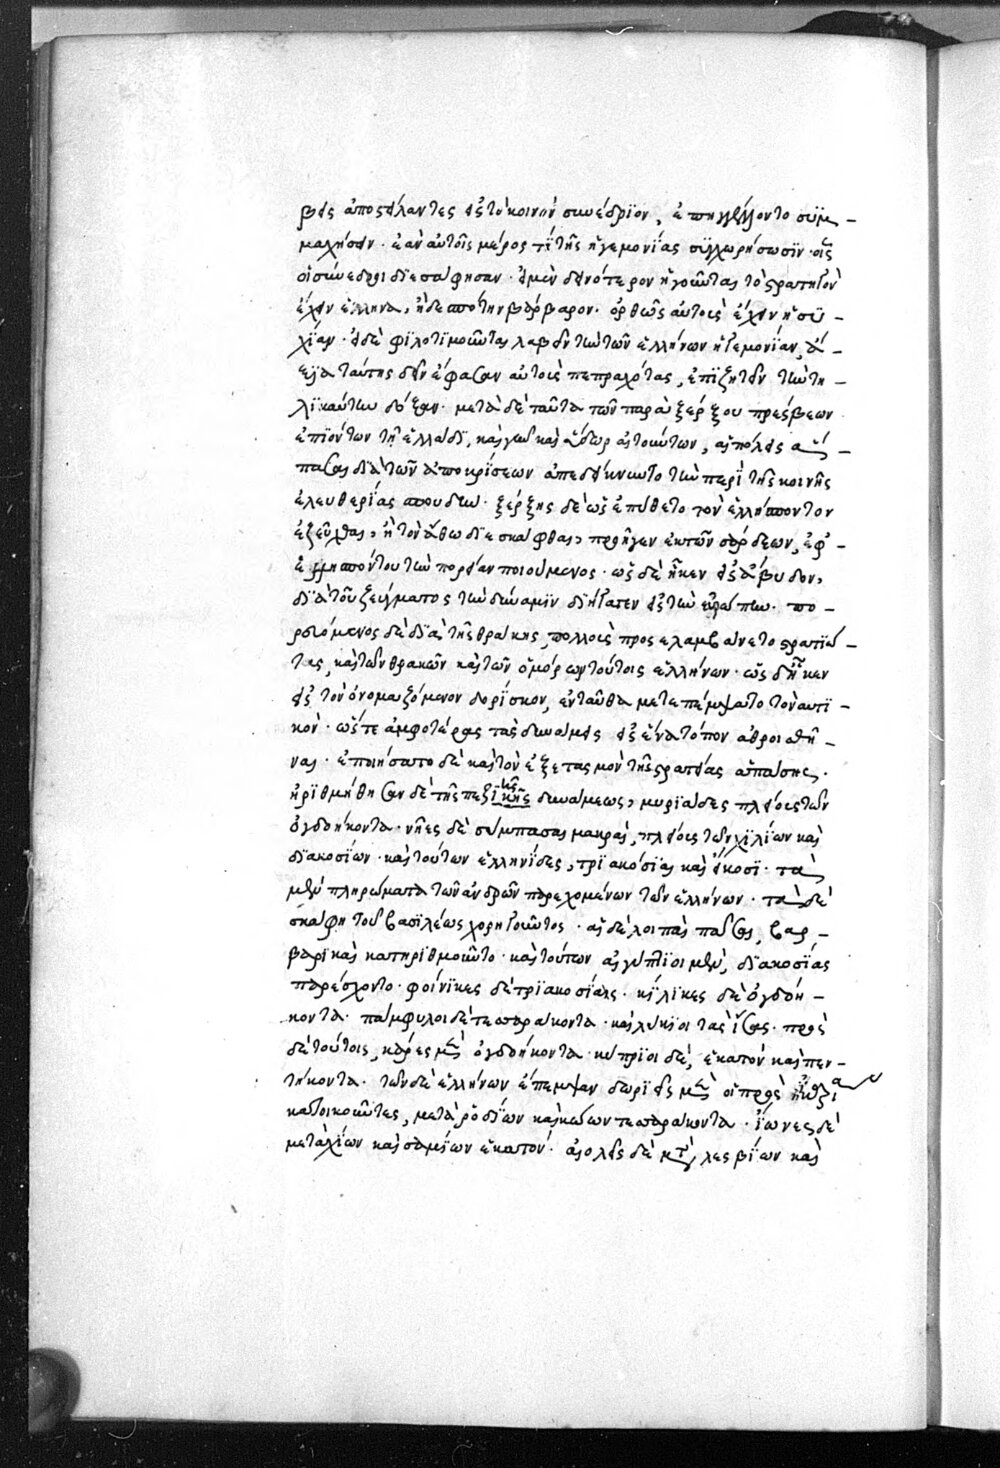 βεις ἀποστείλαντες εἰς τὸ κοινὸν συνέδριον, ἐπηγγέλλοντο συμ-
μαχήσειν· ἐὰν αὐτοῖς μέρος τι τῆς ἡγεμονίας συγχωρήσωσιν· οἷς
οἱ σύνεδροι διεσάφησαν· εἰ μὲν δεινότερον ἡγοῦνται τὸ στρατηγὸν
ἔχειν ἕλληνα, ἢ δεσπότην βάρβαρον· ὀρθῶς αὐτοὺς ἔχειν ἡσυ-
χίαν· εἰ δὲ φιλοτιμοῦνται λαβεῖν τὴν τῶν ἑλλήνων ἡγεμονίαν, ἄ-
ξια ταύτης δεῖν ἔφασαν αὐτοὺς πεπραχότας, ἐπιζητεῖν τὴν τη-
λικαύτην δόξαν· μετὰ δὲ ταῦτα τῶν παρὰ ξέρξου πρέσβεων
ἐπιόντων τὴν ἑλλάδα, καὶ γῆν καὶ ὕδωρ αἰτούντων, αἱ πόλεις ἅ-
πασαι διὰ τῶν ἀποκρίσεων ἀπεδείκνυντο τὴν περὶ τῆς κοινῆς
ἐλευθερίας σπουδήν· ξέρξης δὲ ὡς ἐπύθετο τὸν ἑλλήσποντον
ἐξεῦχθαι, καὶ τὸν ἄθω διεσκάφθαι, προῆγεν ἐκ τῶν σάρδεων, ἐφ'-
ἑλλησπόντου τὴν πορείαν ποιούμενος· ὡς δὲ ἧκεν εἰς ἄβυδον,
διὰ τοῦ ζεύγματος τὴν δύναμιν διήγαγεν εἰς τὴν εὐρώπην· πο-
ρευόμενος δὲ διὰ τῆς θράκης, πολλοὺς προσελαμβάνετο στρατιώ-
τας, καὶ τῶν θρακῶν καὶ τῶν ὁμόρων τούτοις ἑλλήνων· ὡς δ' ἧκεν
εἰς τὸν ὀνομαζόμενον δορίσκον, ἐνταῦθα μετεπέμψατο τὸ ναυτι-
κόν· ὥστε ἀμφοτέρας τὰς δυνάμεις εἰς ἕνα τόπον ἀθροισθῆ-
ναι· ἐποιήσατο δὲ καὶ τὸν ἐξετασμὸν τῆς στρατείας ἁπάσης·
ἠριθμήθησαν δὲ τῆς πεζικῆς δυνάμεως, μυριάδες πλείους τῶν
ὀγδοήκοντα· νῆες δὲ σύμπασαι μακραὶ, πλείους τῶν χιλίων καὶ
διακοσίων· καὶ τούτων ἑλληνίδες, τριακόσιαι καὶ εἴκοσι· τὰ
μὲν πληρώματα τῶν ἀνδρῶν παρεχομένων τῶν ἑλλήνων· τὰ δὲ
σκάφη τοῦ βασιλέως χορηγοῦντος· αἱ δὲ λοιπαὶ πᾶσαι, βαρ-
βαρικαὶ κατηριθμοῦντο· καὶ τούτων αἰγύπτιοι μὲν, διακοσίας
παρέσχοντο· φοίνικες δὲ τριακοσίας· κίλικες δὲ ὀγδοή-
κοντα· πάμφυλοι δὲ τεσσαράκοντα· καὶ λύκιοι τὰς ἴσας· πρὸς
δὲ τούτοις, κᾶρες μὲν ὀγδοήκοντα· κύπριοι δὲ, ἑκατὸν καὶ πεν-
τήκοντα· τῶν δὲ ἑλλήνων ἔπεμψαν δωριεῖς μὲν οἱ πρὸς
κατοικοῦντες, μετὰ ῥοδίων καὶ κώων τεσσαράκοντα· ἴωνες δὲ
μετὰ χίων καὶ σαμίων ἑκατόν· αἰολεῖς δὲ μετὰ λεσβίων καὶ